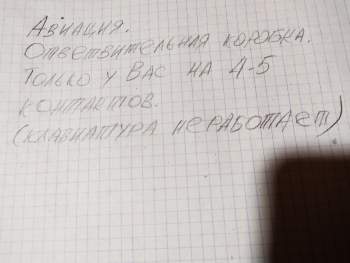 Авиация.
Ответвительная коробка.
Только у Вас на 4-5
контактов.
(клавиатура неработает)